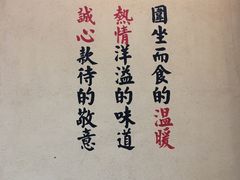 圍坐而食的溫暖
熱情洋溢的味道
誠心款待的敬意